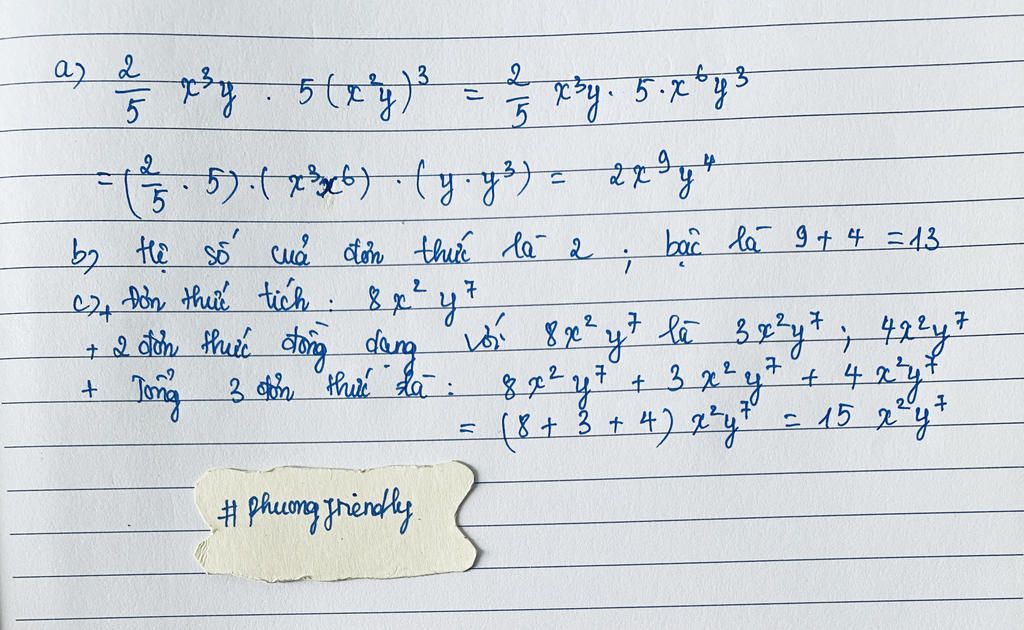 a) 2/5 x³y . 5(x²y)³ = 2/5 x³y . 5 . x⁶y³
= (2/5 . 5) . (x³x⁶) . (y . y³) = 2x⁹y⁴
b) Hệ số của đơn thức là 2 ; bậc là 9 + 4 = 13
c) + Đơn thức tích : 8x² y⁷
+ 2 đơn thức đồng dạng với 8x² y⁷ là 3x²y⁷ ; 4x²y⁷
+ Tổng 3 đơn thức là : 8x² y⁷ + 3 x² y⁷ + 4 x²y⁷
= (8 + 3 + 4) x²y⁷ = 15 x²y⁷
# phuongfriendly